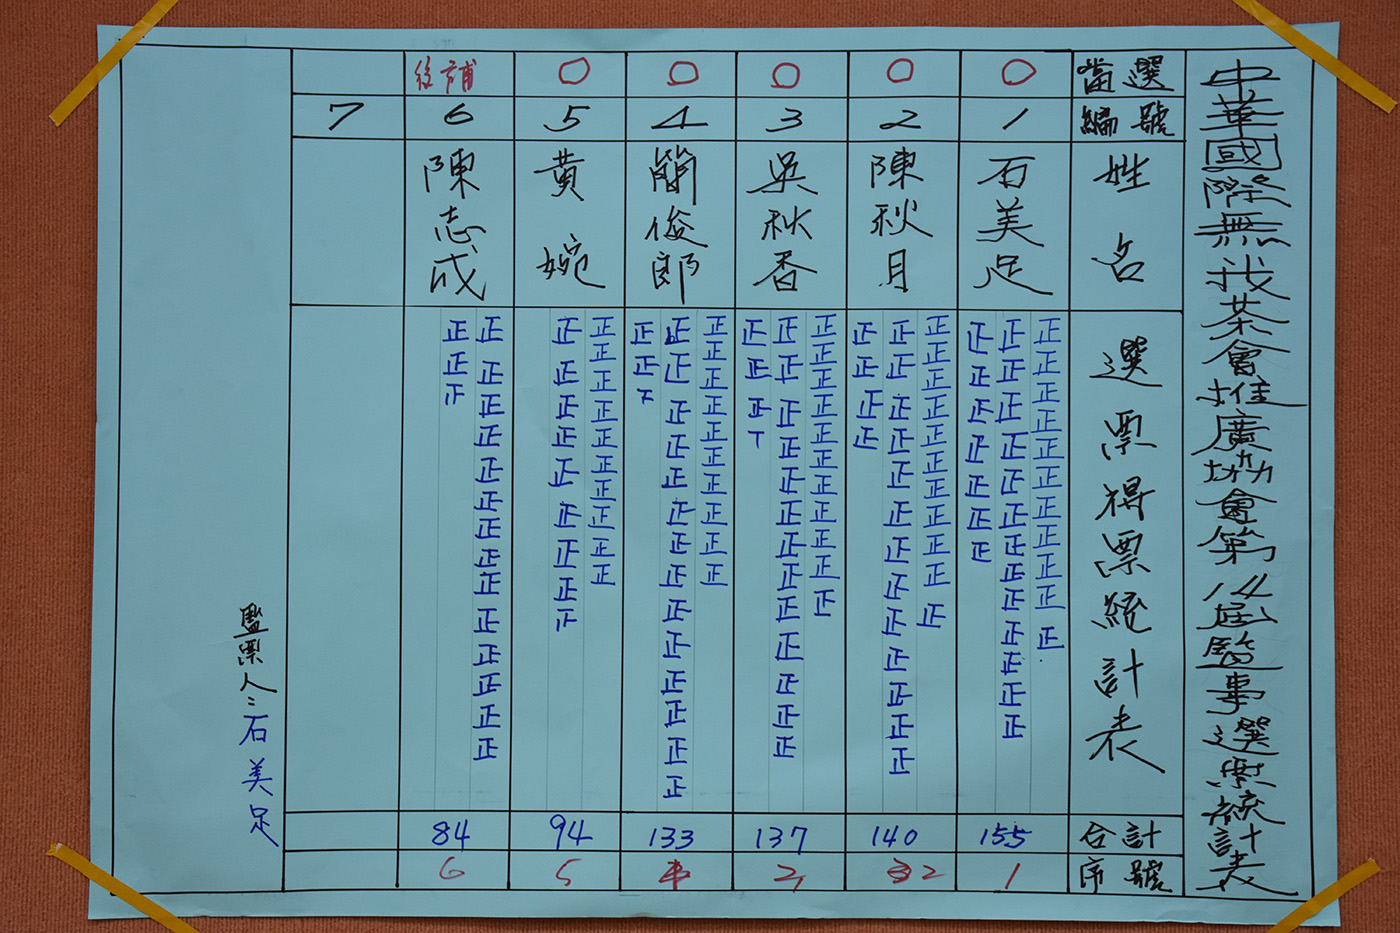 中華國際無我茶會推廣協會第14屆監事選票統計表
當選
編號
姓名
選票得票統計表
合計
序號
○
1
石美足
正正正正正正正正正正正正
正正正正正正正正正正正正
正正正正正正正
155
1
○
2
陳秋月
正正正正正正正正正正正
正正正正正正正正正正正正正
正正正正
140
2
○
3
吳秋香
正正正正正正正正正正正
正正正正正正正正正正正正正
正正正丅
137
3
○
4
簡俊郎
正正正正正正正正正正
正正正正正正正正正正正正正正
正正下
133
4
○
5
黃婉
正正正正正正正正正正
正正正正正正正正
94
5
後補
6
陳志成
正正正正正正正正正正正正正正
正正
84
6
7
監票人:石美足